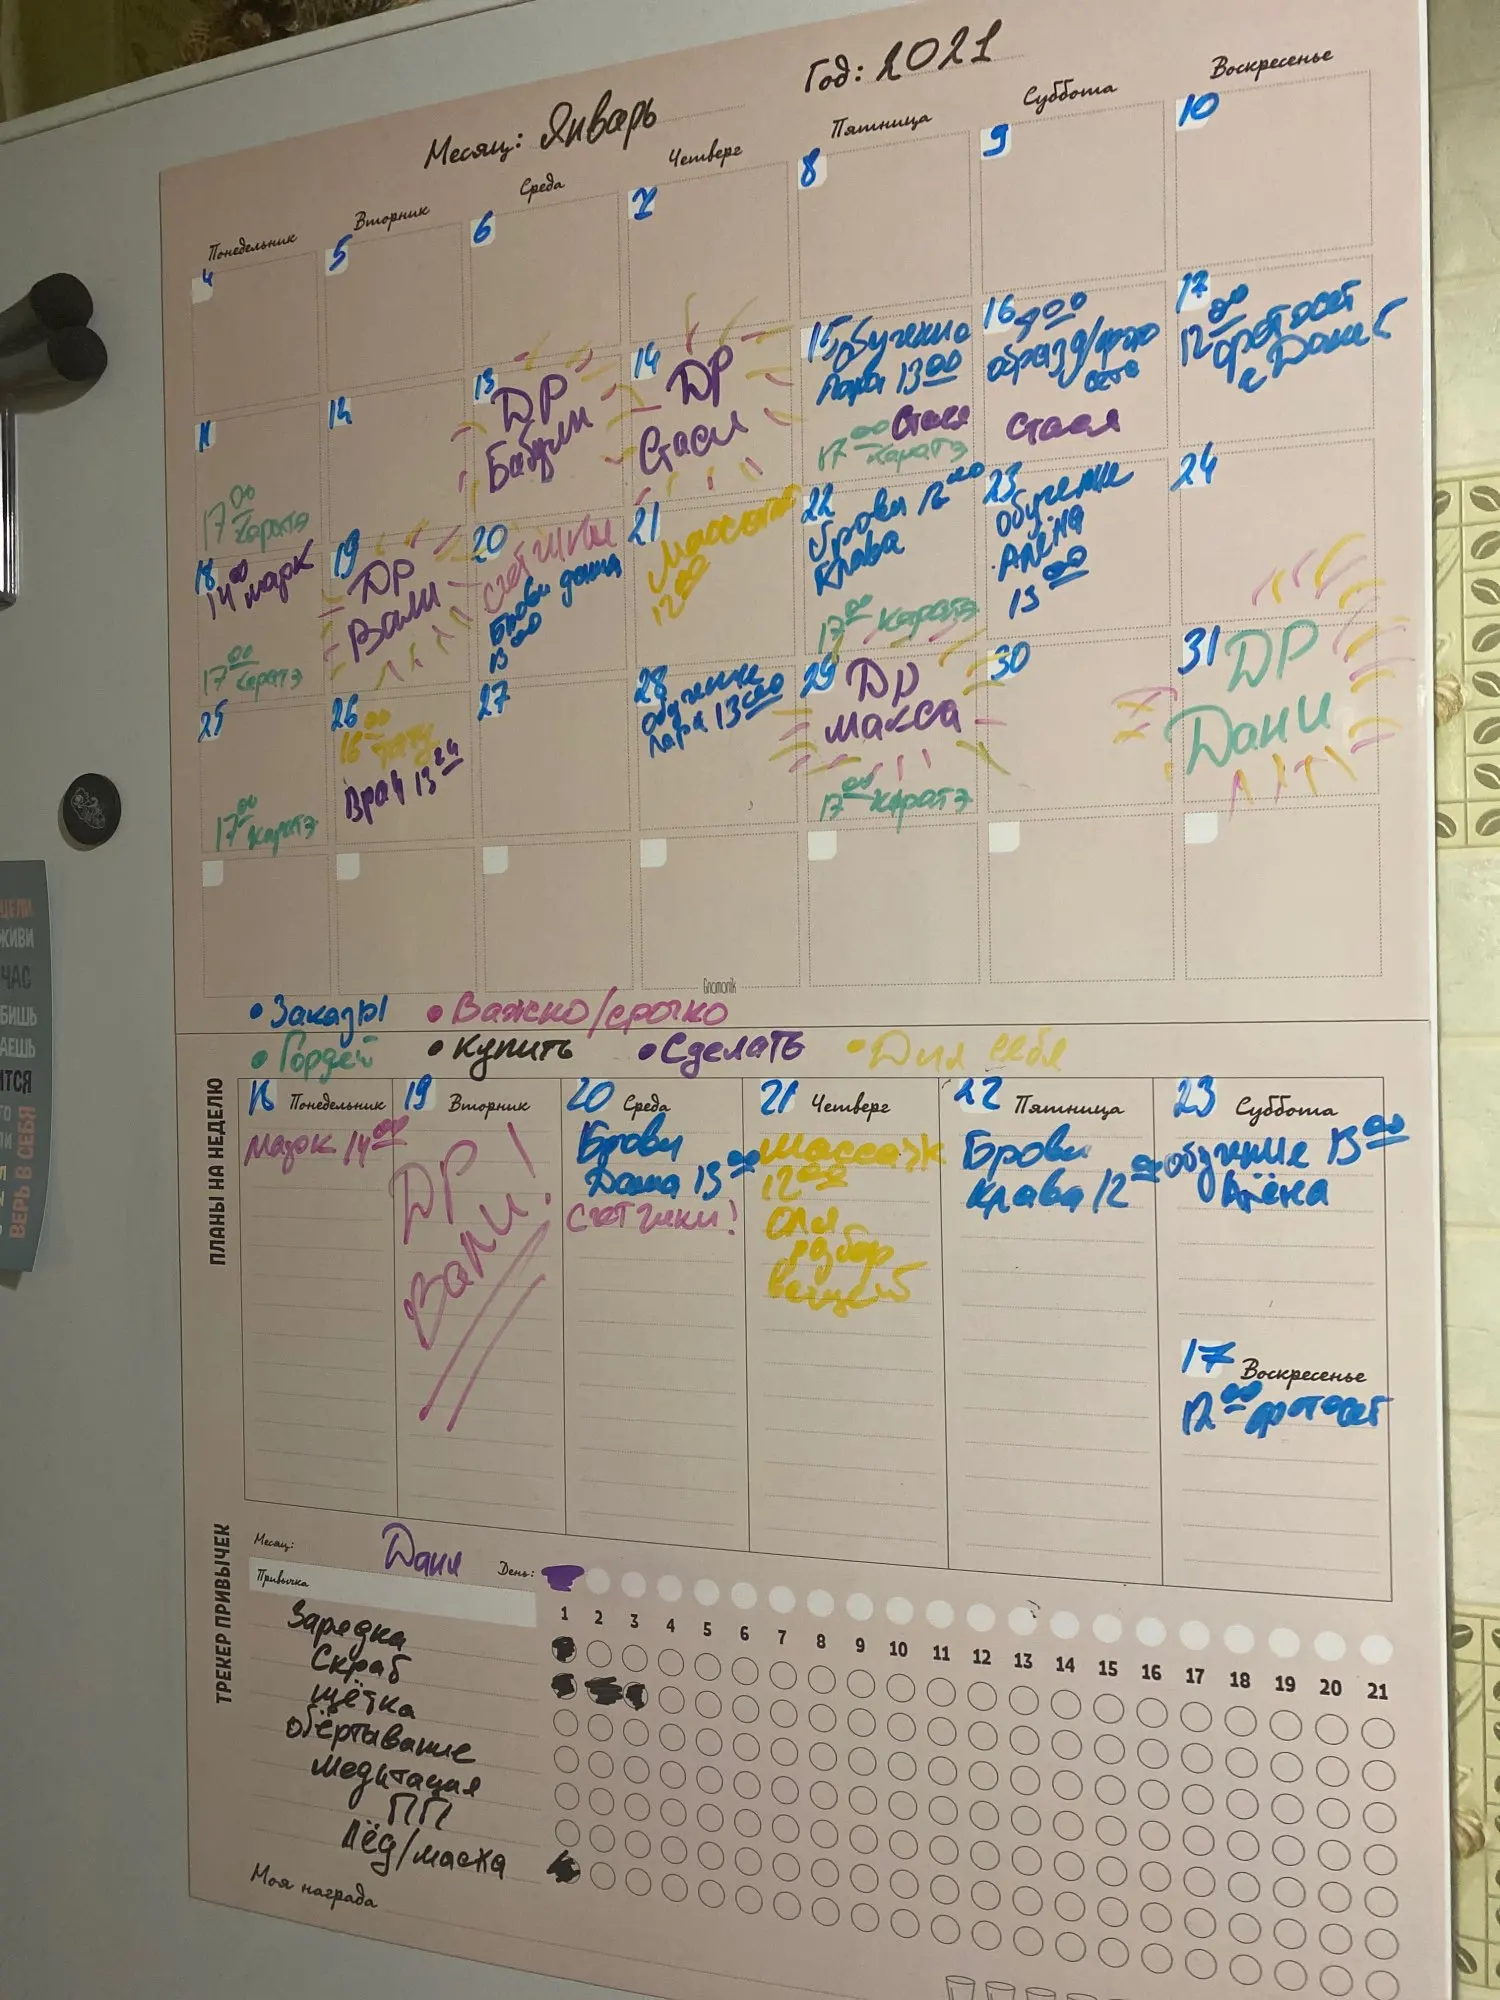 Месяц: Январь
Год: 2021
Понедельник
Вторник
Среда
Четверг
Пятница
Суббота
Воскресенье
4
5
6
7
8
9
10
11
17 00
Каратэ
12
13
ДР
Бабули
14
ДР
Стаси
15 Обучение
Лара 13 00
Стася
17 00 Каратэ
16 9 00
образ/фото
сета
Стася
17
12 00 фотосет
с Даней
18
14 00 Марк
17 00
Каратэ
19
ДР
Вали
20
Счётчики
Брови даша
13 00
21
Массаж
12 00
22
Брови 12 00
Клава
17 00 Каратэ
23
Обучение
Алёна
13 00
24
25
17 00 Каратэ
26
16 00 тату
Врач 13 24
27
28
Обучение
Лара 13 00
29 ДР
Макса
17 00 Каратэ
30
31 ДР
Дани
Gnomonik
• Заказы • Важно/срочно
• Гордей • Купить • Сделать • Для себя
ПЛАНЫ НА НЕДЕЛЮ
18 Понедельник
Мазок 14 00
19 Вторник
ДР
Вали!
20 Среда
Брови
Даша 13 00
Счётчики!
21 Четверг
Массаж
12 00
Оля
разбор
вещей
22 Пятница
Брови
Клава 12 00
23 Суббота
Обучение 13 00
Алёна
17 Воскресенье
12 00 фотосет
ТРЕКЕР ПРИВЫЧЕК
Месяц: Даня День:
Привычка
1 2 3 4 5 6 7 8 9 10 11 12 13 14 15 16 17 18 19 20 21
Зарядка
Скраб
Щётка
Обёртывание
Медитация
ПП
Лёд/маска
Моя награда
ЦЕЛИ
ЖИВИ
ЧАС
ВЕРЬ В СЕБЯ